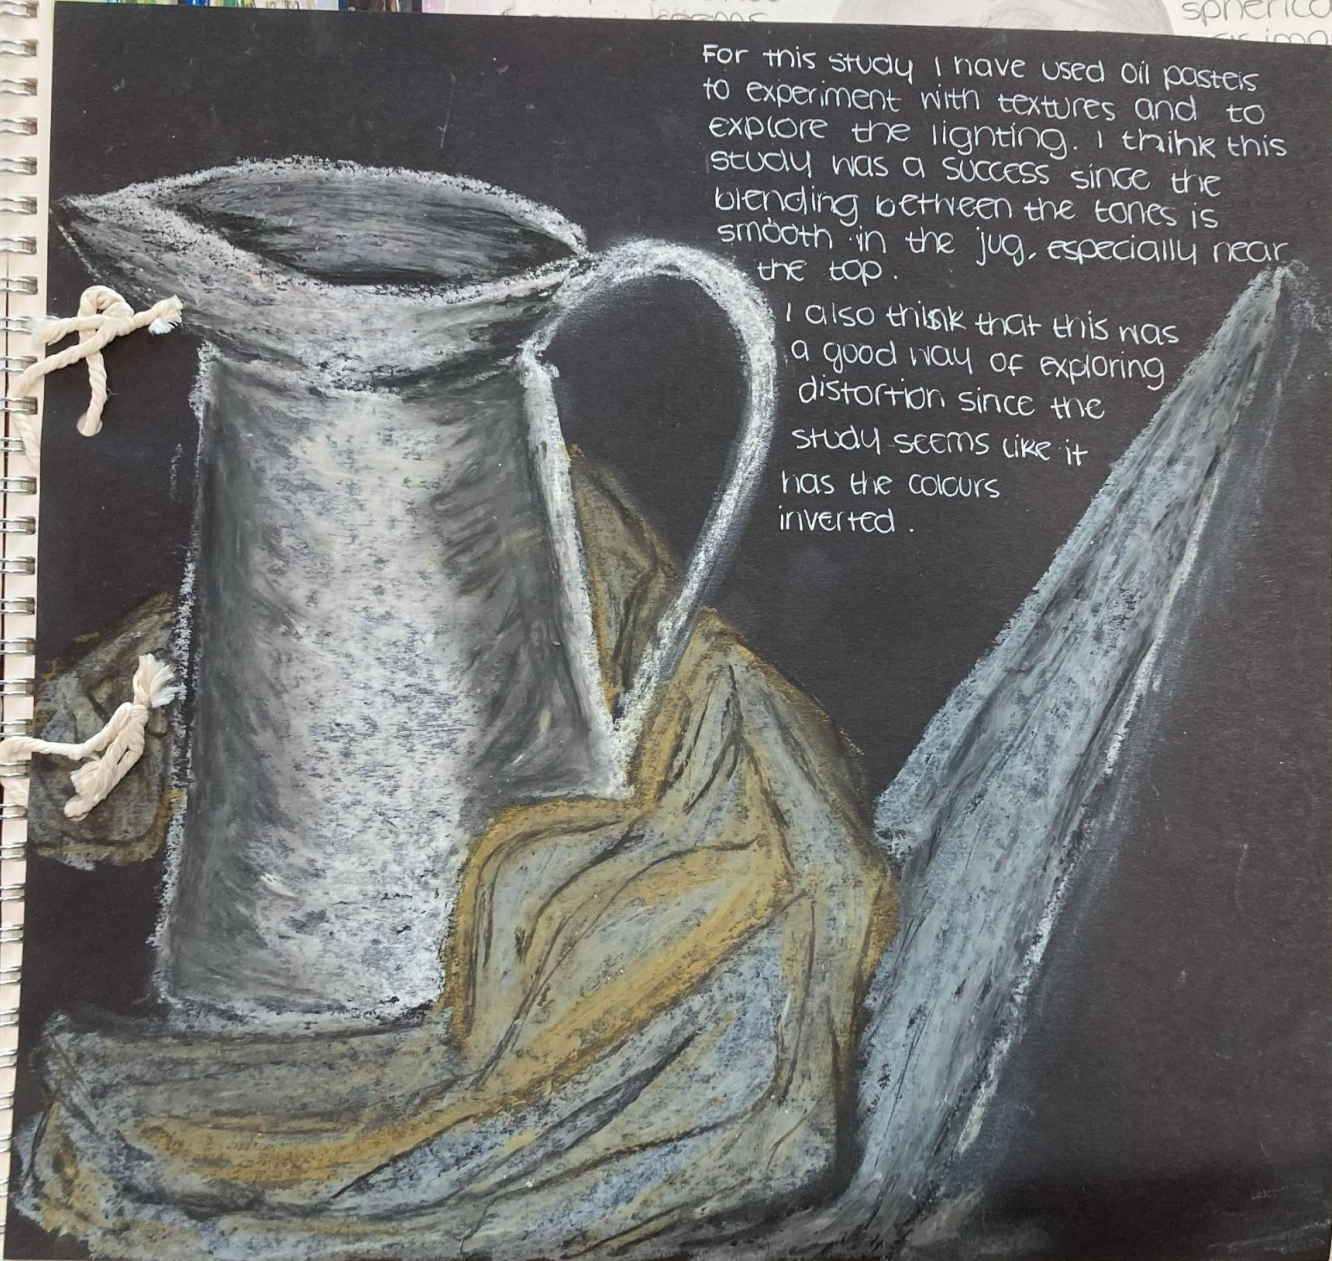 spherica
For this study I have used oil pastels
to experiment with textures and to
explore the lighting. I think this
study was a success since the
blending between the tones is
smooth in the jug, especially near
the top.
I also think that this was
a good way of exploring
distortion since the
study seems like it
has the colours
inverted.